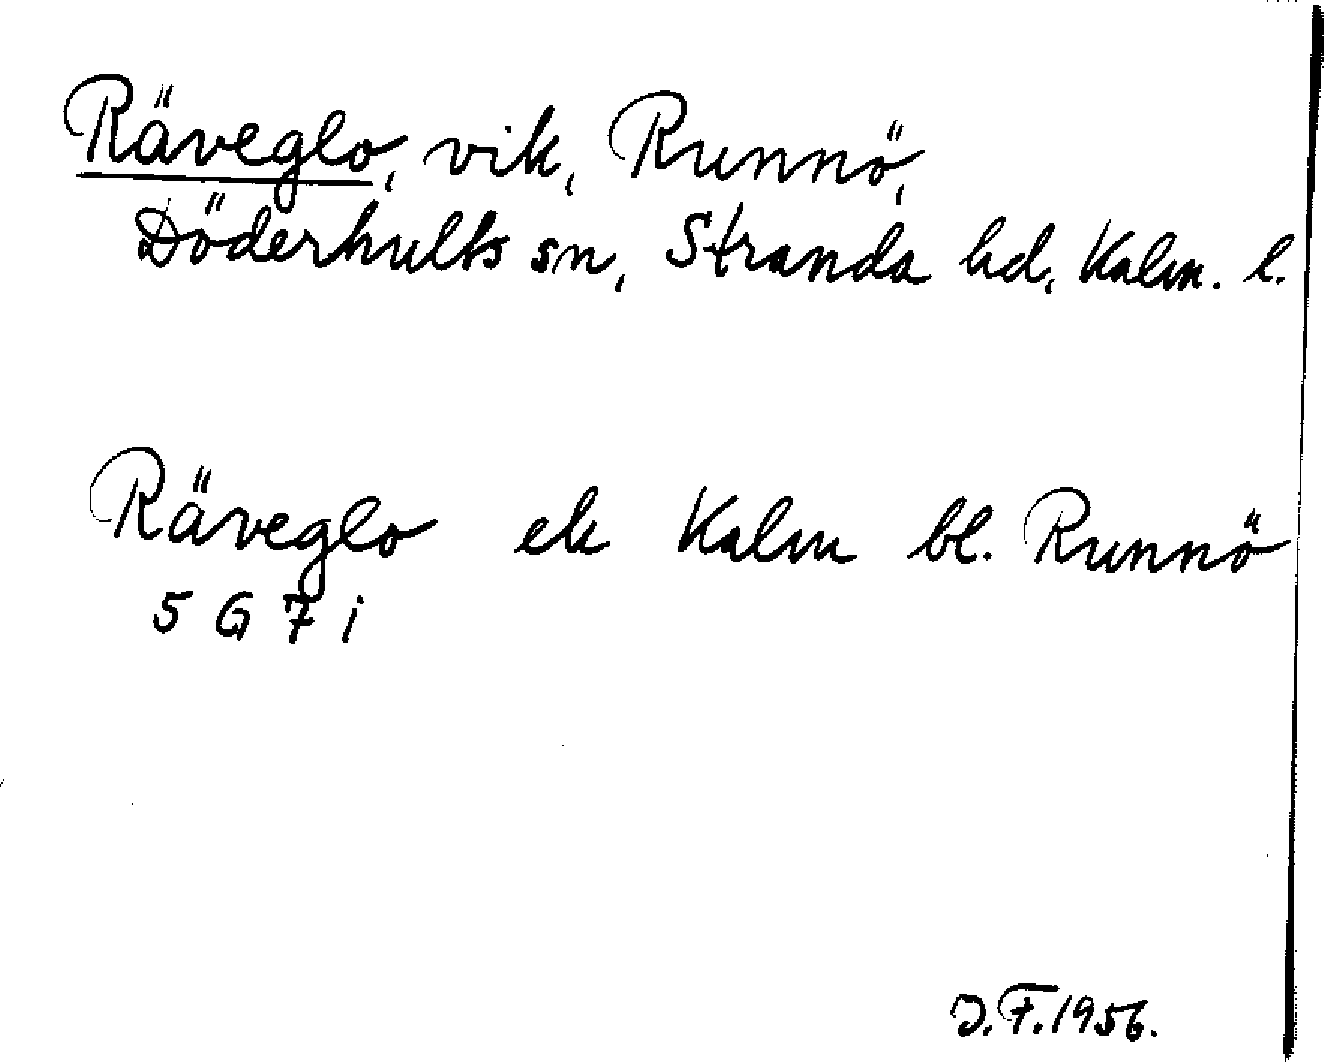 Räveglo, vik, Runnö,
Döderhults sn, Stranda hd, Kalm. l.
Räveglo ek Kalm bl. Runnö
5 G 7 i
J.F. 1956.